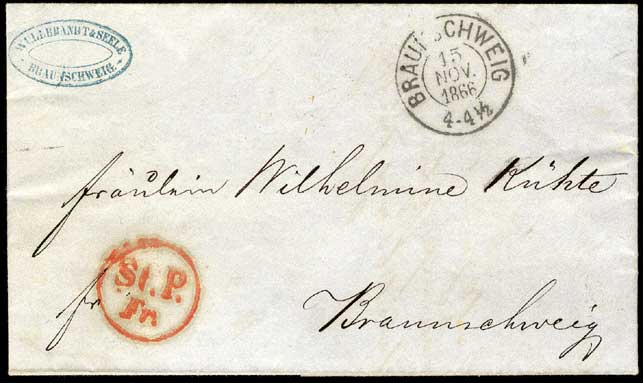 WULLBRANDT & SEELE
BRAUNSCHWEIG.
BRAUNSCHWEIG
15
NOV.
1866
4-4½
Fräulein Wilhelmine Kühte
St. P.
Fr.
fr
Braunschweig